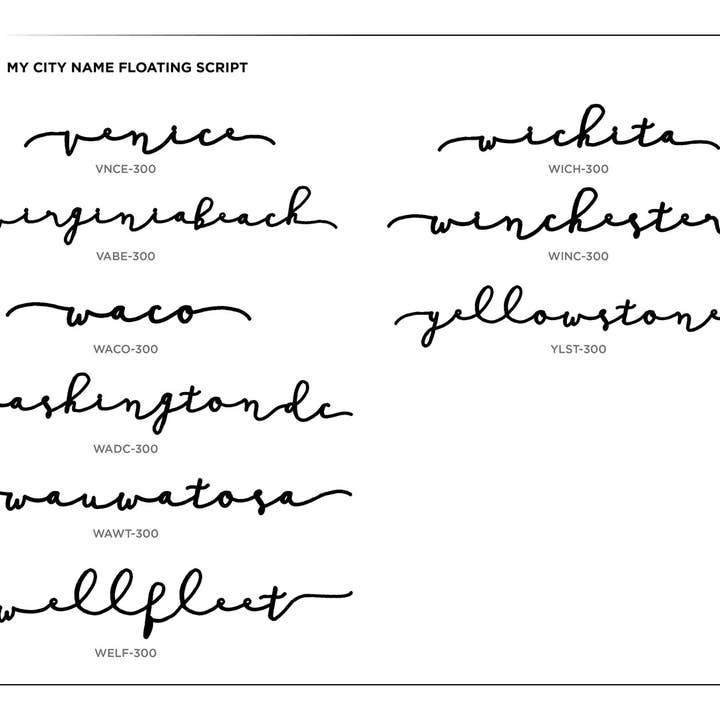 MY CITY NAME FLOATING SCRIPT
venice
VNCE-300
virginiabeach
VABE-300
waco
WACO-300
washingtondc
WADC-300
wauwatosa
WAWT-300
wellfleet
WELF-300
wichita
WICH-300
winchester
WINC-300
yellowstone
YLST-300